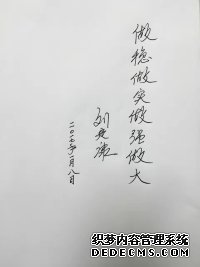 做稳做实做强做大
二〇一七年一月八日
织梦内容管理系统
DEDECMS.COM